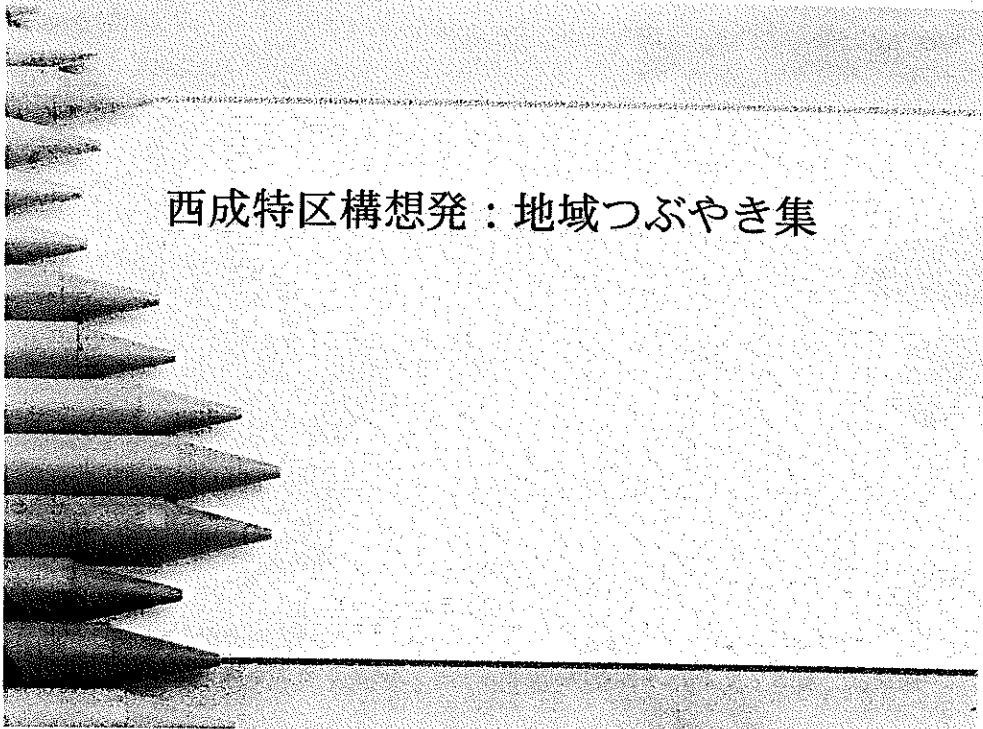 西成特区構想発：地域つぶやき集